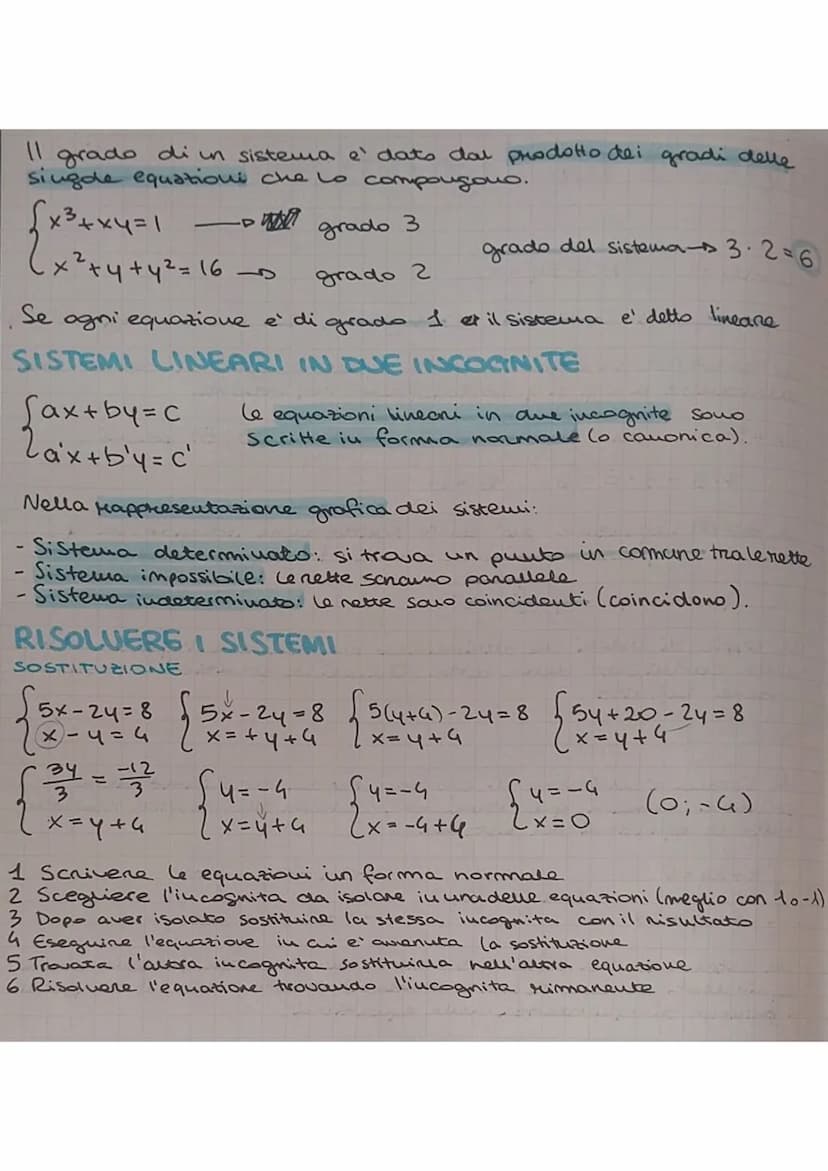 Il grado di un sistema e' dato dal prodotto dei gradi delle
singole equazioni che lo compongono.
x³+xy=1 → grado 3
grado del sistema → 3 · 2 = 6
x²+y+y²=16 → grado 2
Se ogni equazione e' di grado 1 il sistema e' detto lineare
SISTEMI LINEARI IN DUE INCOGNITE
{ax+by=c Le equazioni lineari in due incognite sono
a'x+b'y=c' scritte in forma normale (o canonica).
Nella rappresentazione grafica dei sistemi:
- Sistema determinato: si trova un punto in comune tra le rette
- Sistema impossibile: le rette saranno parallele
- Sistema indeterminato: le rette sono coincidenti (coincidono).
RISOLVERE I SISTEMI
SOSTITUZIONE
{5x-2y=8 {5x-2y=8 {5(y+4)-2y=8 {5y+20-2y=8
x-y=4 x=+y+4 x=y+4 x=y+4
{3y/3 = -12/3 {y=-4 {y=-4 {y=-4 (0;-4)
x=y+4 x=y+4 x=-4+4 x=0
1 Scrivere le equazioni in forma normale
2 Scegliere l'incognita da isolare in una delle equazioni (meglio con 1 o -1)
3 Dopo aver isolato sostituire la stessa incognita con il risultato
4 Eseguire l'equazione in cui e' avvenuta la sostituzione
5 Trovata l'altra incognita sostituirla nell'altra equazione
6 Risolvere l'equazione trovando l'incognita rimanente